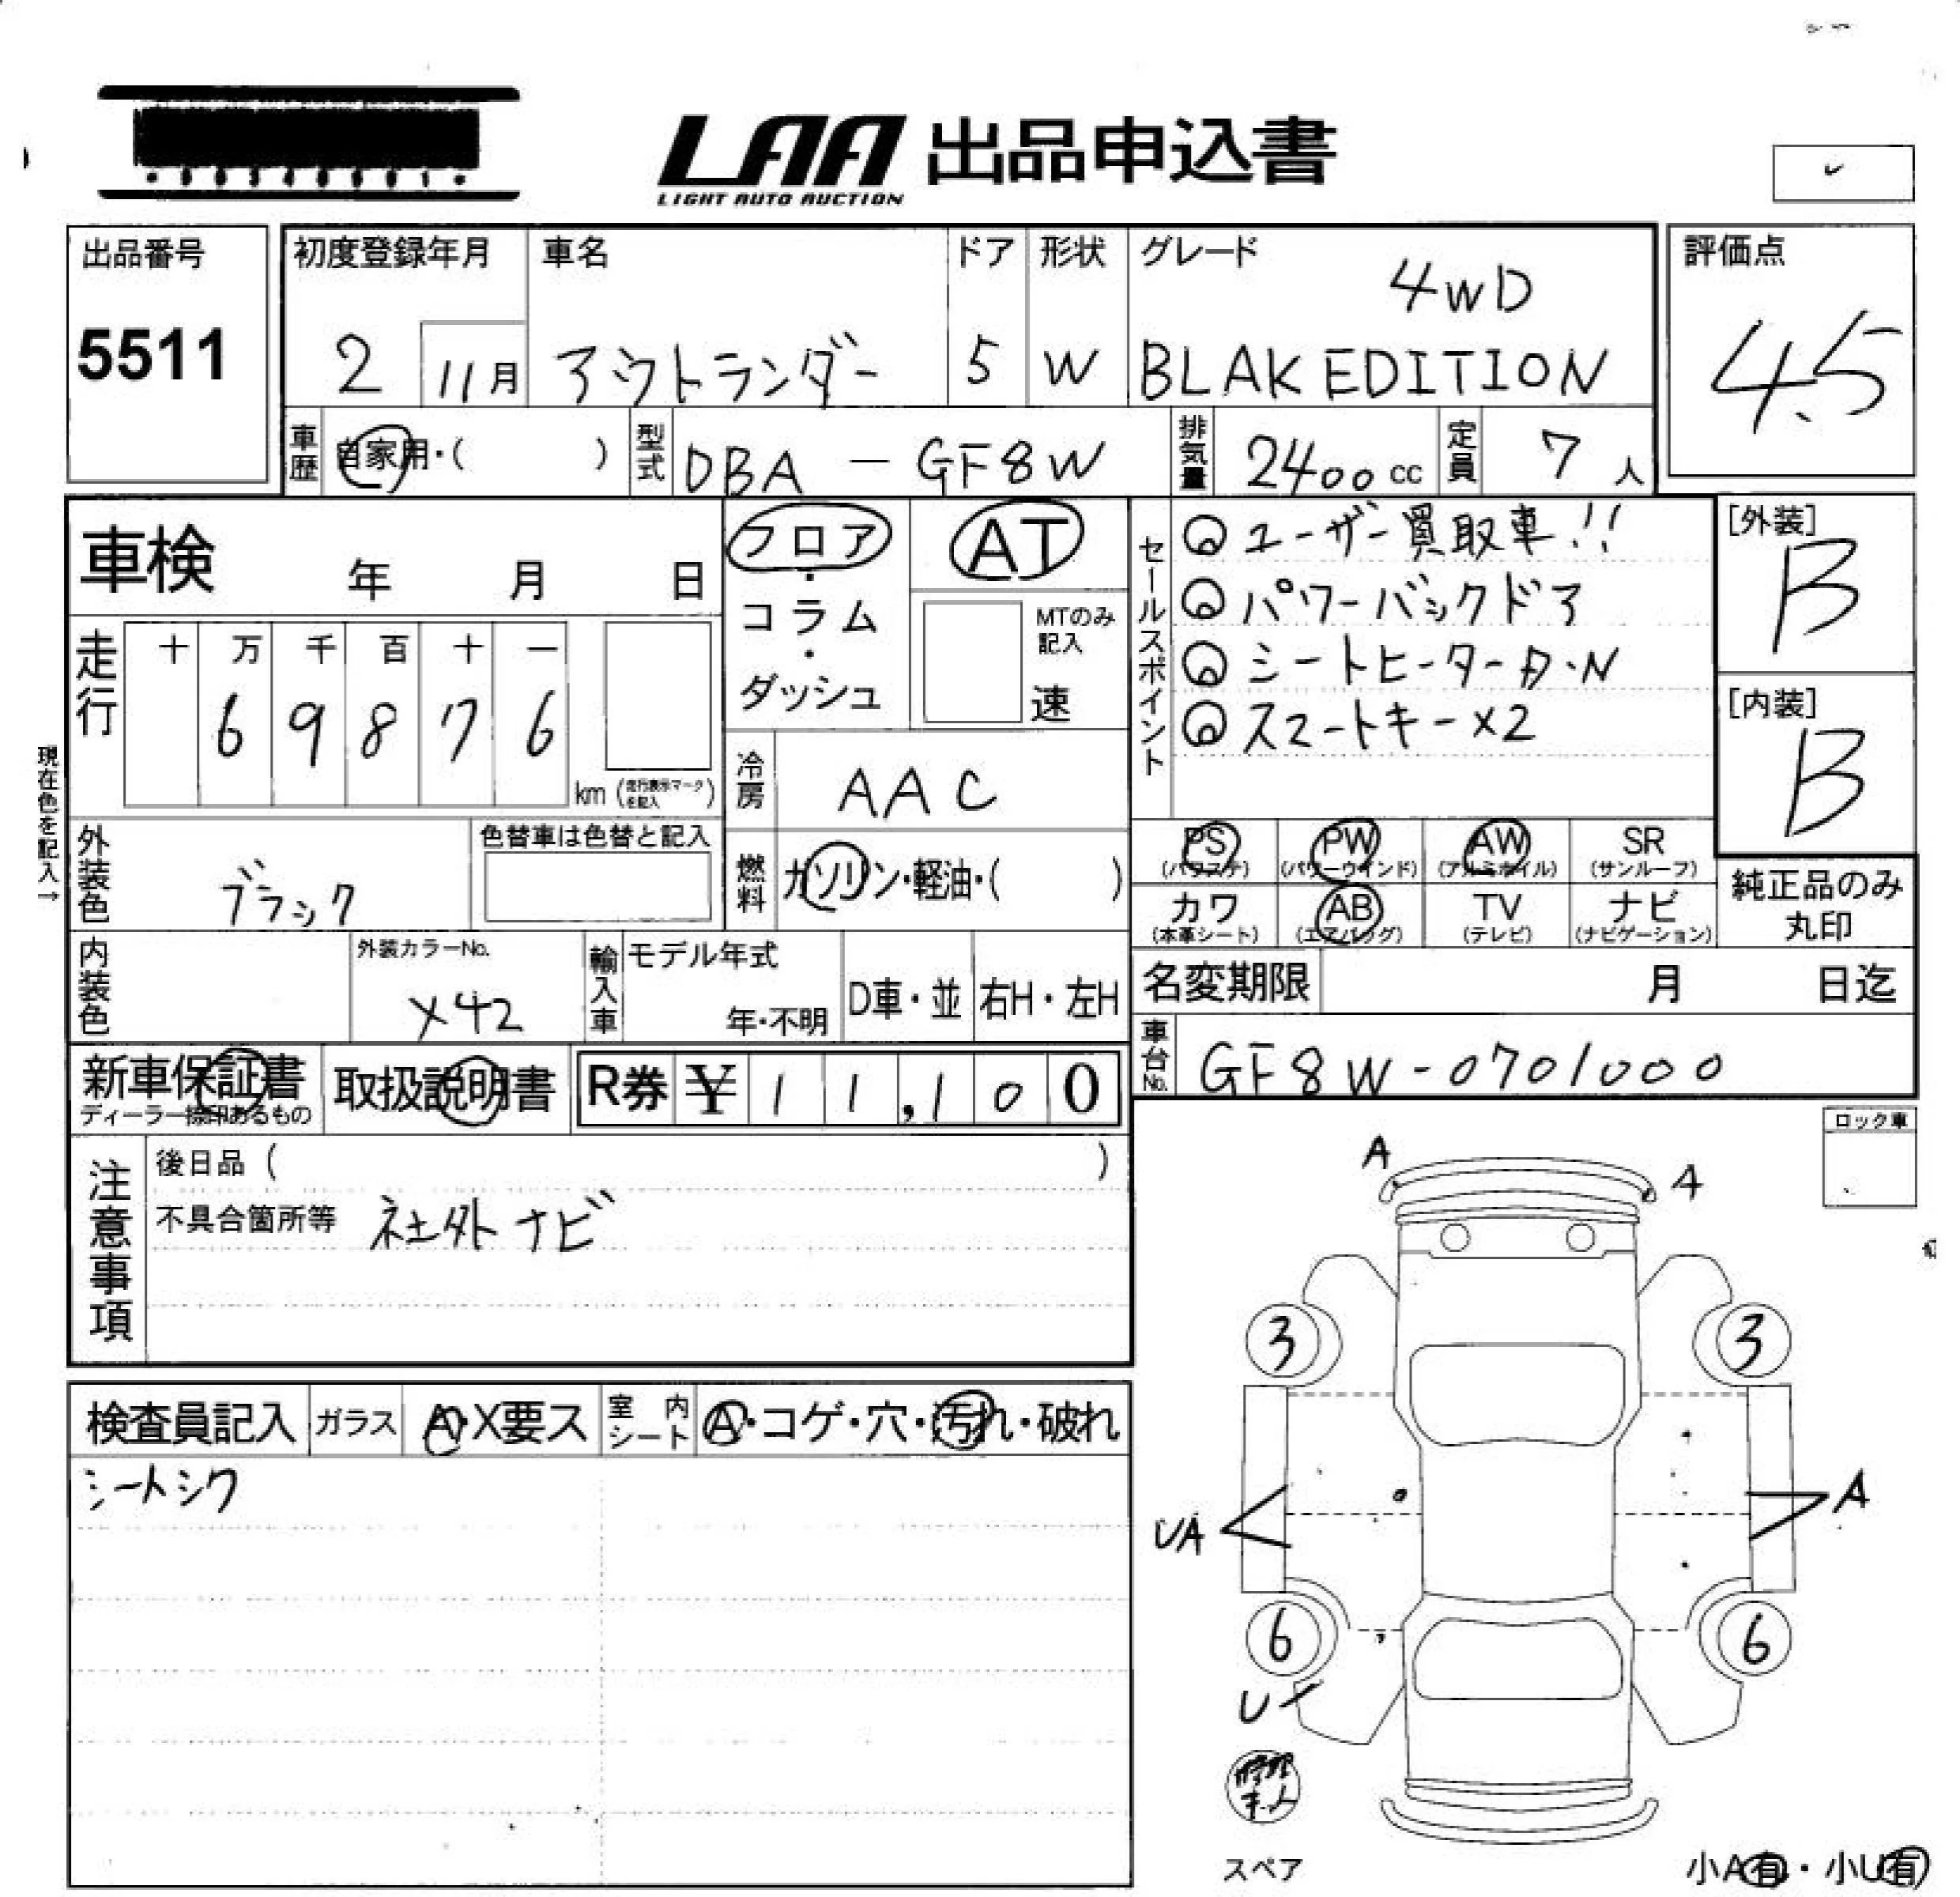 LAA 出品申込書
LIGHT AUTO AUCTION
出品番号
5511
初度登録年月
2 11月
車名
アウトランダー
ドア
5
形状
W
グレード
4WD
BLAK EDITION
評価点
4.5
車歴 自家用・( )
型式 DBA - GF8W
排気量 2400 cc
定員 7 人
車検 年 月 日
フロア・コラム・ダッシュ
AT
MTのみ記入
速
セールスポイント
ユーザー買取車!!
パワーバックドア
シートヒーター D・N
スマートキー×2
[外装]
B
[内装]
B
走行
十 万 千 百 十 一
6 9 8 7 6
km (走行表示マークを記入)
冷房 AAC
現在色を記入→
外装色 ブラック
色替車は色替と記入
燃料 ガソリン・軽油・( )
PS (パワステ)
PW (パワーウインド)
AW (アルミホイル)
SR (サンルーフ)
カワ (本革シート)
AB (エアバッグ)
TV (テレビ)
ナビ (ナビゲーション)
純正品のみ
丸印
内装色
外装カラーNo.
X42
輸入車
モデル年式
年・不明
D車・並
右H・左H
名変期限 月 日迄
車台No. GF8W-0701000
新車保証書
ディーラー捺印あるもの
取扱説明書
R券 ¥ 1 1 , 1 0 0
注意事項
後日品 ( )
不具合箇所等 社外ナビ
ロック車
A
A
3
3
UA
A
6
6
U
スペア
小A有・小U有
検査員記入
ガラス A・X要ス
室内シート A・コゲ・穴・汚れ・破れ
シートシワ